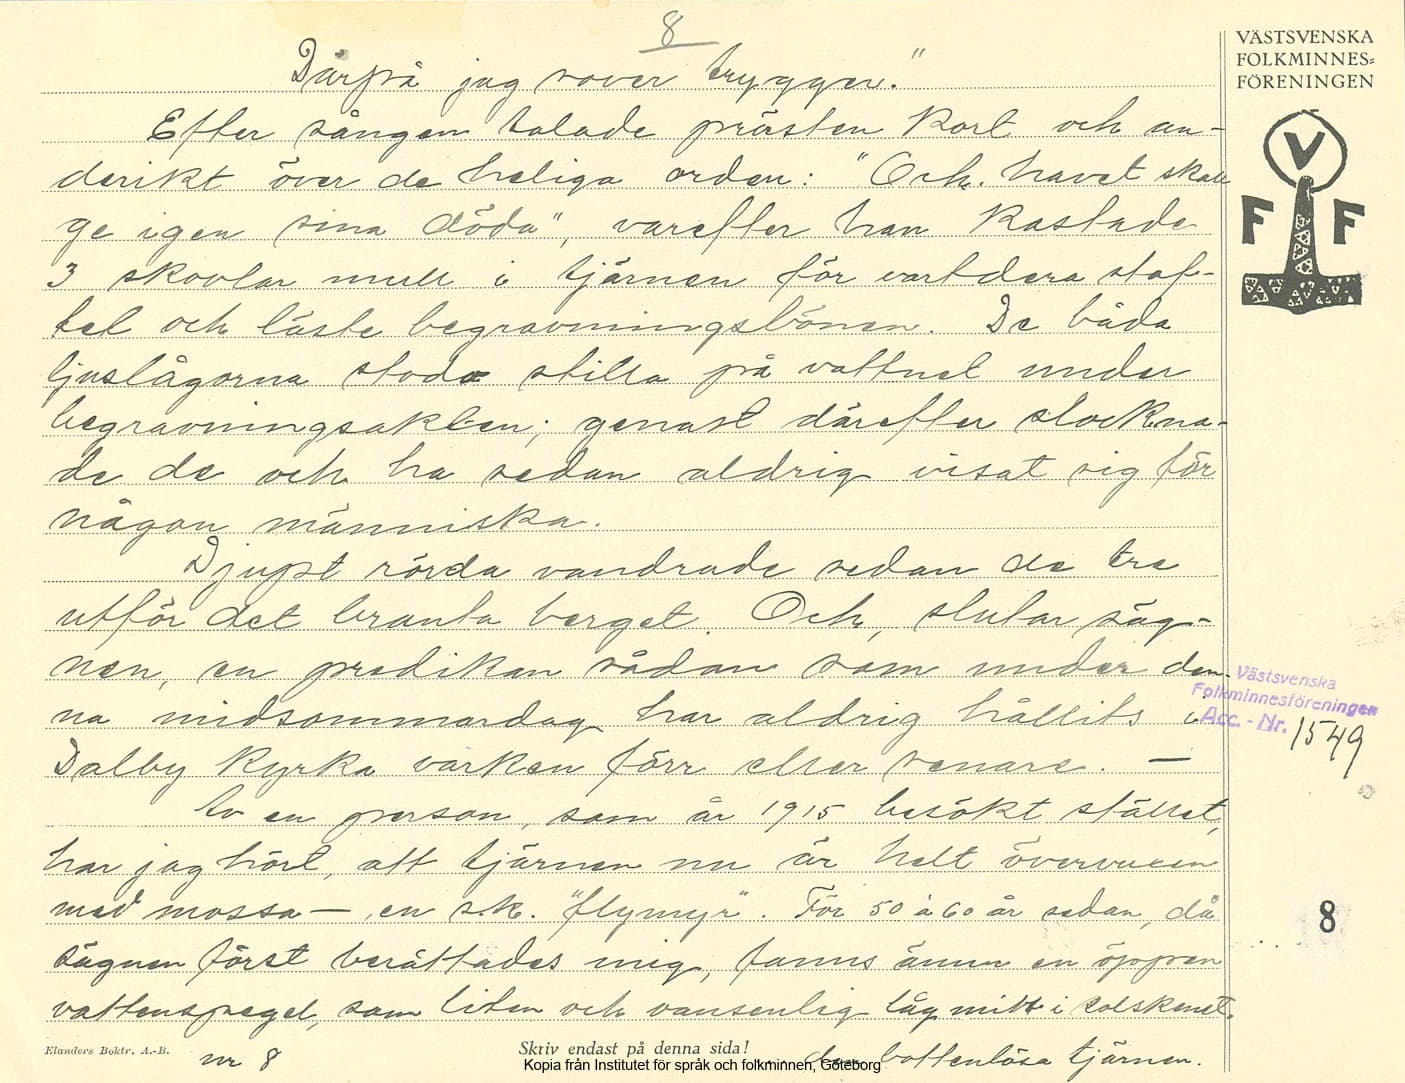 8
Därpå jag sover trygger."
Efter sången talade prästen kort och an-
derikt över de heliga orden: "Och havet skall
ge igen sina döda", varefter han kastade
3 skovlar mull i tjärnen för vartdera stof-
tet och läste begravningsbönen. De båda
ljuslågorna stodo stilla på vattnet under
begravningsakten; genast därefter slockna-
de de och ha sedan aldrig visat sig för
någon människa.
Djupt rörda vandrade sedan de tre
utför det branta berget. Och, slutar säg-
nen, en predikan sådan som under den-
na midsommardag har aldrig hållits i
Dalby kyrka varken förr eller senare. —
Av en person, som år 1915 besökt stället,
har jag hört, att tjärnen nu är helt övervuxen
med mossa — en s.k. "flymyr". För 50 à 60 år sedan, då
sägnen först berättades mig, fanns ännu en öppen
vattenspegel, som liten och oansenlig låg mitt i solskenet.
den bottenlösa tjärnen.
VÄSTSVENSKA
FOLKMINNES=
FÖRENINGEN
V
F F
Västsvenska
Folkminnesföreningen
Acc. - Nr. 1549
8
Elanders Boktr. A.-B.
nr 8
Skriv endast på denna sida!
Kopia från Institutet för språk och folkminnen, Göteborg